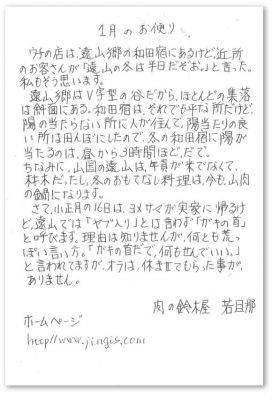 1月のお便り
ウチの店は、遠山郷の和田宿にあるけど、近所
のお客さんが「遠山の冬は半日だぞお。」と言った。
私もそう思います。
遠山郷はV字型の谷だから、ほとんどの集落
は斜面にある。和田宿は、それでも平な所だけど、
陽の当たらない所に人が住んで、陽当たりの良
い所は田んぼにしたので、冬の和田宿に陽が
当たるのは、昼から3時間ほど、だで。
ちなみに、山国の遠山は、年貢が米でなくて、
材木だったし、冬のおもてなし料理は今も、山肉
の鍋になります。
さて、小正月の16日は、ヨメサマが実家に帰るけ
ど、遠山では「ヤブ入り」とは言わず「ガキの首」
と呼びます。理由は知りませんが、何とも荒っ
ぽい言い方。「ガキの首だで、何もせんでいい。」
と言われてますが、オラは、休ませてもらった事が、
ありません。
肉の鈴木屋 若旦那
ホームページ
http//www.jingis.com